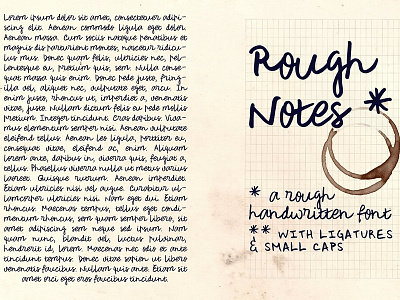 Lorem ipsum dolor sit amet, consectetuer adipi-
scing elit. Aenean commodo ligula eget dolor.
Aenean massa. Cum sociis natoque penatibus et
magnis dis parturient montes, nascetur ridicu-
lus mus. Donec quam felis, ultricies nec, pel-
lentesque eu, pretium quis, sem. Nulla conse-
quat massa quis enim. Donec pede justo, fring-
illa vel, aliquet nec, vulputate eget, arcu. In
enim justo, rhoncus ut, imperdiet a, venenatis
vitae, justo. Nullam dictum felis eu pede mollis
pretium. Integer tincidunt. Cras dapibus. Viva-
mus elementum semper nisi. Aenean vulputate
eleifend tellus. Aenean leo ligula, porttitor eu,
consequat vitae, eleifend ac, enim. Aliquam
lorem ante, dapibus in, viverra quis, feugiat a,
tellus. Phasellus viverra nulla ut metus varius
laoreet. Quisque rutrum. Aenean imperdiet.
Etiam ultricies nisi vel augue. Curabitur ul-
lamcorper ultricies nisi. Nam eget dui. Etiam
rhoncus. Maecenas tempus, tellus eget condi-
mentum rhoncus, sem quam semper libero, sit
amet adipiscing sem neque sed ipsum. Nam
quam nunc, blandit vel, luctus pulvinar,
hendrerit id, lorem. Maecenas nec odio et ante
tincidunt tempus. Donec vitae sapien ut libero
venenatis faucibus. Nullam quis ante. Etiam sit
amet orci eget eros faucibus tincidunt.
Rough
Notes *
* a rough
handwritten font
** WITH LIGATURES
& SMALL CAPS